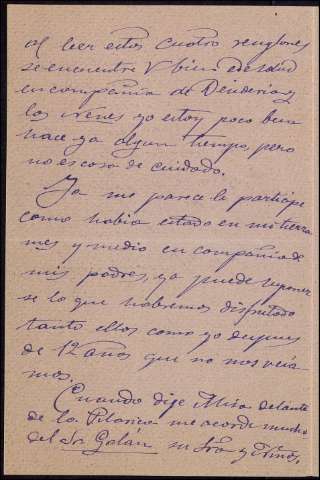 al leer estos cuatro renglones
se encuentre V bien de salud
en compañia de Desideria y
los nenes yo estoy poco bien
hace ya algun tiempo, pero
no es cosa de cuidado.
Ya me parece le participe
como habia estado en mi tierra
mes y medio en compañia de
mis padres, ya puede suponer
se lo que habremos disfrutado
tanto ellos como yo despues
de 12 años que no nos veia
mos.
Cuando dije Misa delante
de la Pilarica me acorde mucho
del Sr Galán su Sra y Niños,